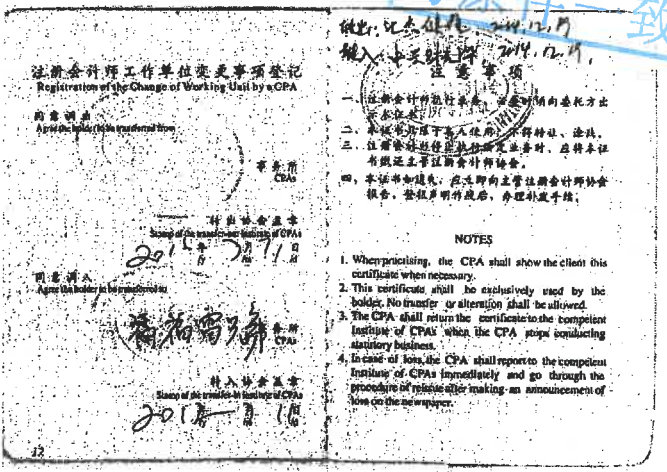 注册会计师工作单位变更事项登记
Registration of the Change of Working Unit by a CPA
同意调出
Agree the holder to be transferred from
事务所
CPAs
转出协会盖章
Stamp of the transfer-out Institute of CPAs
年 月 日
同意调入
Agree the holder to be transferred to
事务所
CPAs
转入协会盖章
Stamp of the transfer-in Institute of CPAs
12
一致
2014.12.
2014.12.
注意事项
一、注册会计师执行业务,必要时须向委托方出
示本证书。
二、本证书只限于本人使用,不得转让、涂改。
三、注册会计师停止执行法定业务时,应将本证
书缴还主管注册会计师协会。
四、本证书如遗失,应立即向主管注册会计师协会
报告,登报声明作废后,办理补发手续。
NOTES
1. When practising, the CPA shall show the client this
certificate when necessary.
2. This certificate shall be exclusively used by the
holder. No transfer or alteration shall be allowed.
3. The CPA shall return the certificate to the competent
Institute of CPAs when the CPA stops conducting
statutory business.
4. In case of loss, the CPA shall report to the competent
Institute of CPAs immediately and go through the
procedure of reissue after making an announcement of
loss on the newspaper.